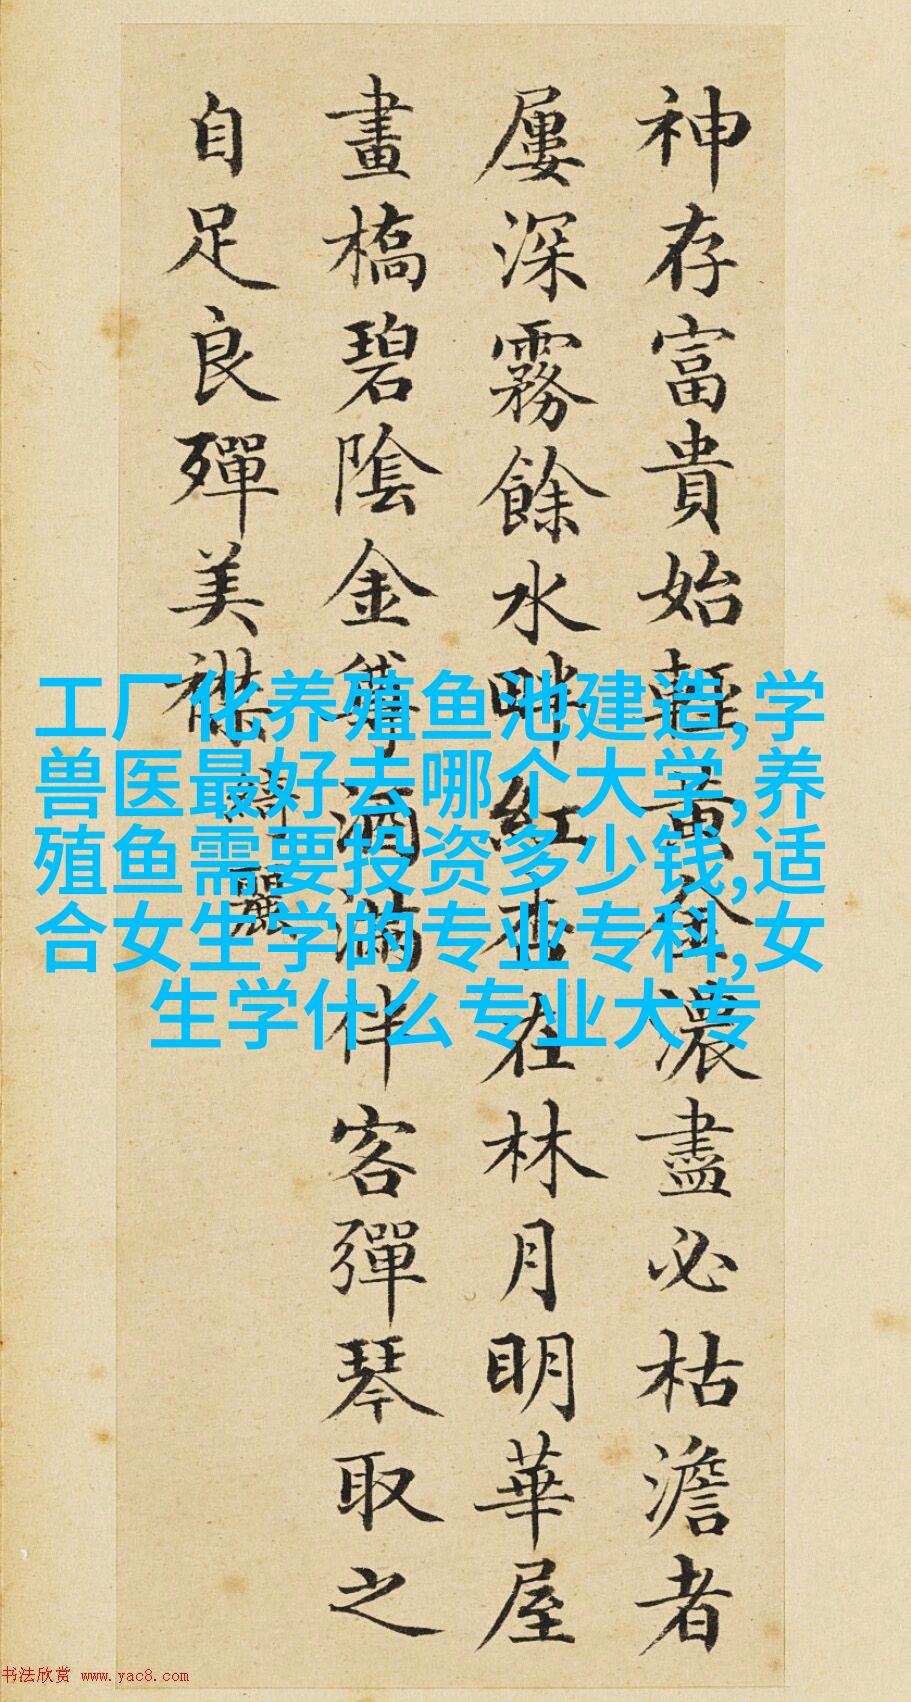 神存富貴始輕黃金濃盡必枯澹者
屢深霧餘水畔紅杏在林月明華屋
畫橋碧陰金罇酒滿伴客彈琴取之
自足良殫美襟
綺麗
工厂化养殖鱼池建造,学
兽医最好去哪个大学,养
殖鱼需要投资多少钱,适
合女生学的专业专科,女
生学什么专业大专
书法欣赏 www.yac8.com